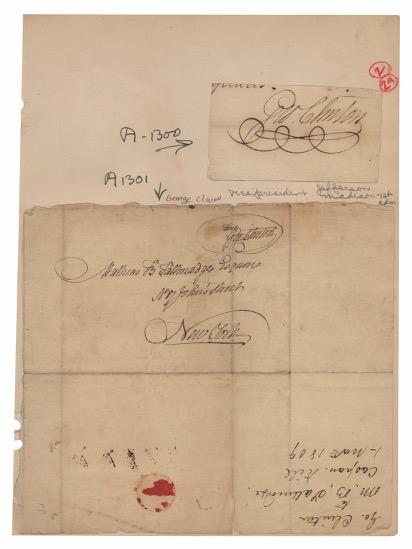 2
2A
Geo. Clinton
A-1300
A1301
George Clinton Vice President Jefferson
Madison - 1st
Adm
Free
Geo Clinton
Mathias B Tallmadge Esquire
No 9 John Street
New York
Go. Clinton
to
M. B. Talmadge
1809